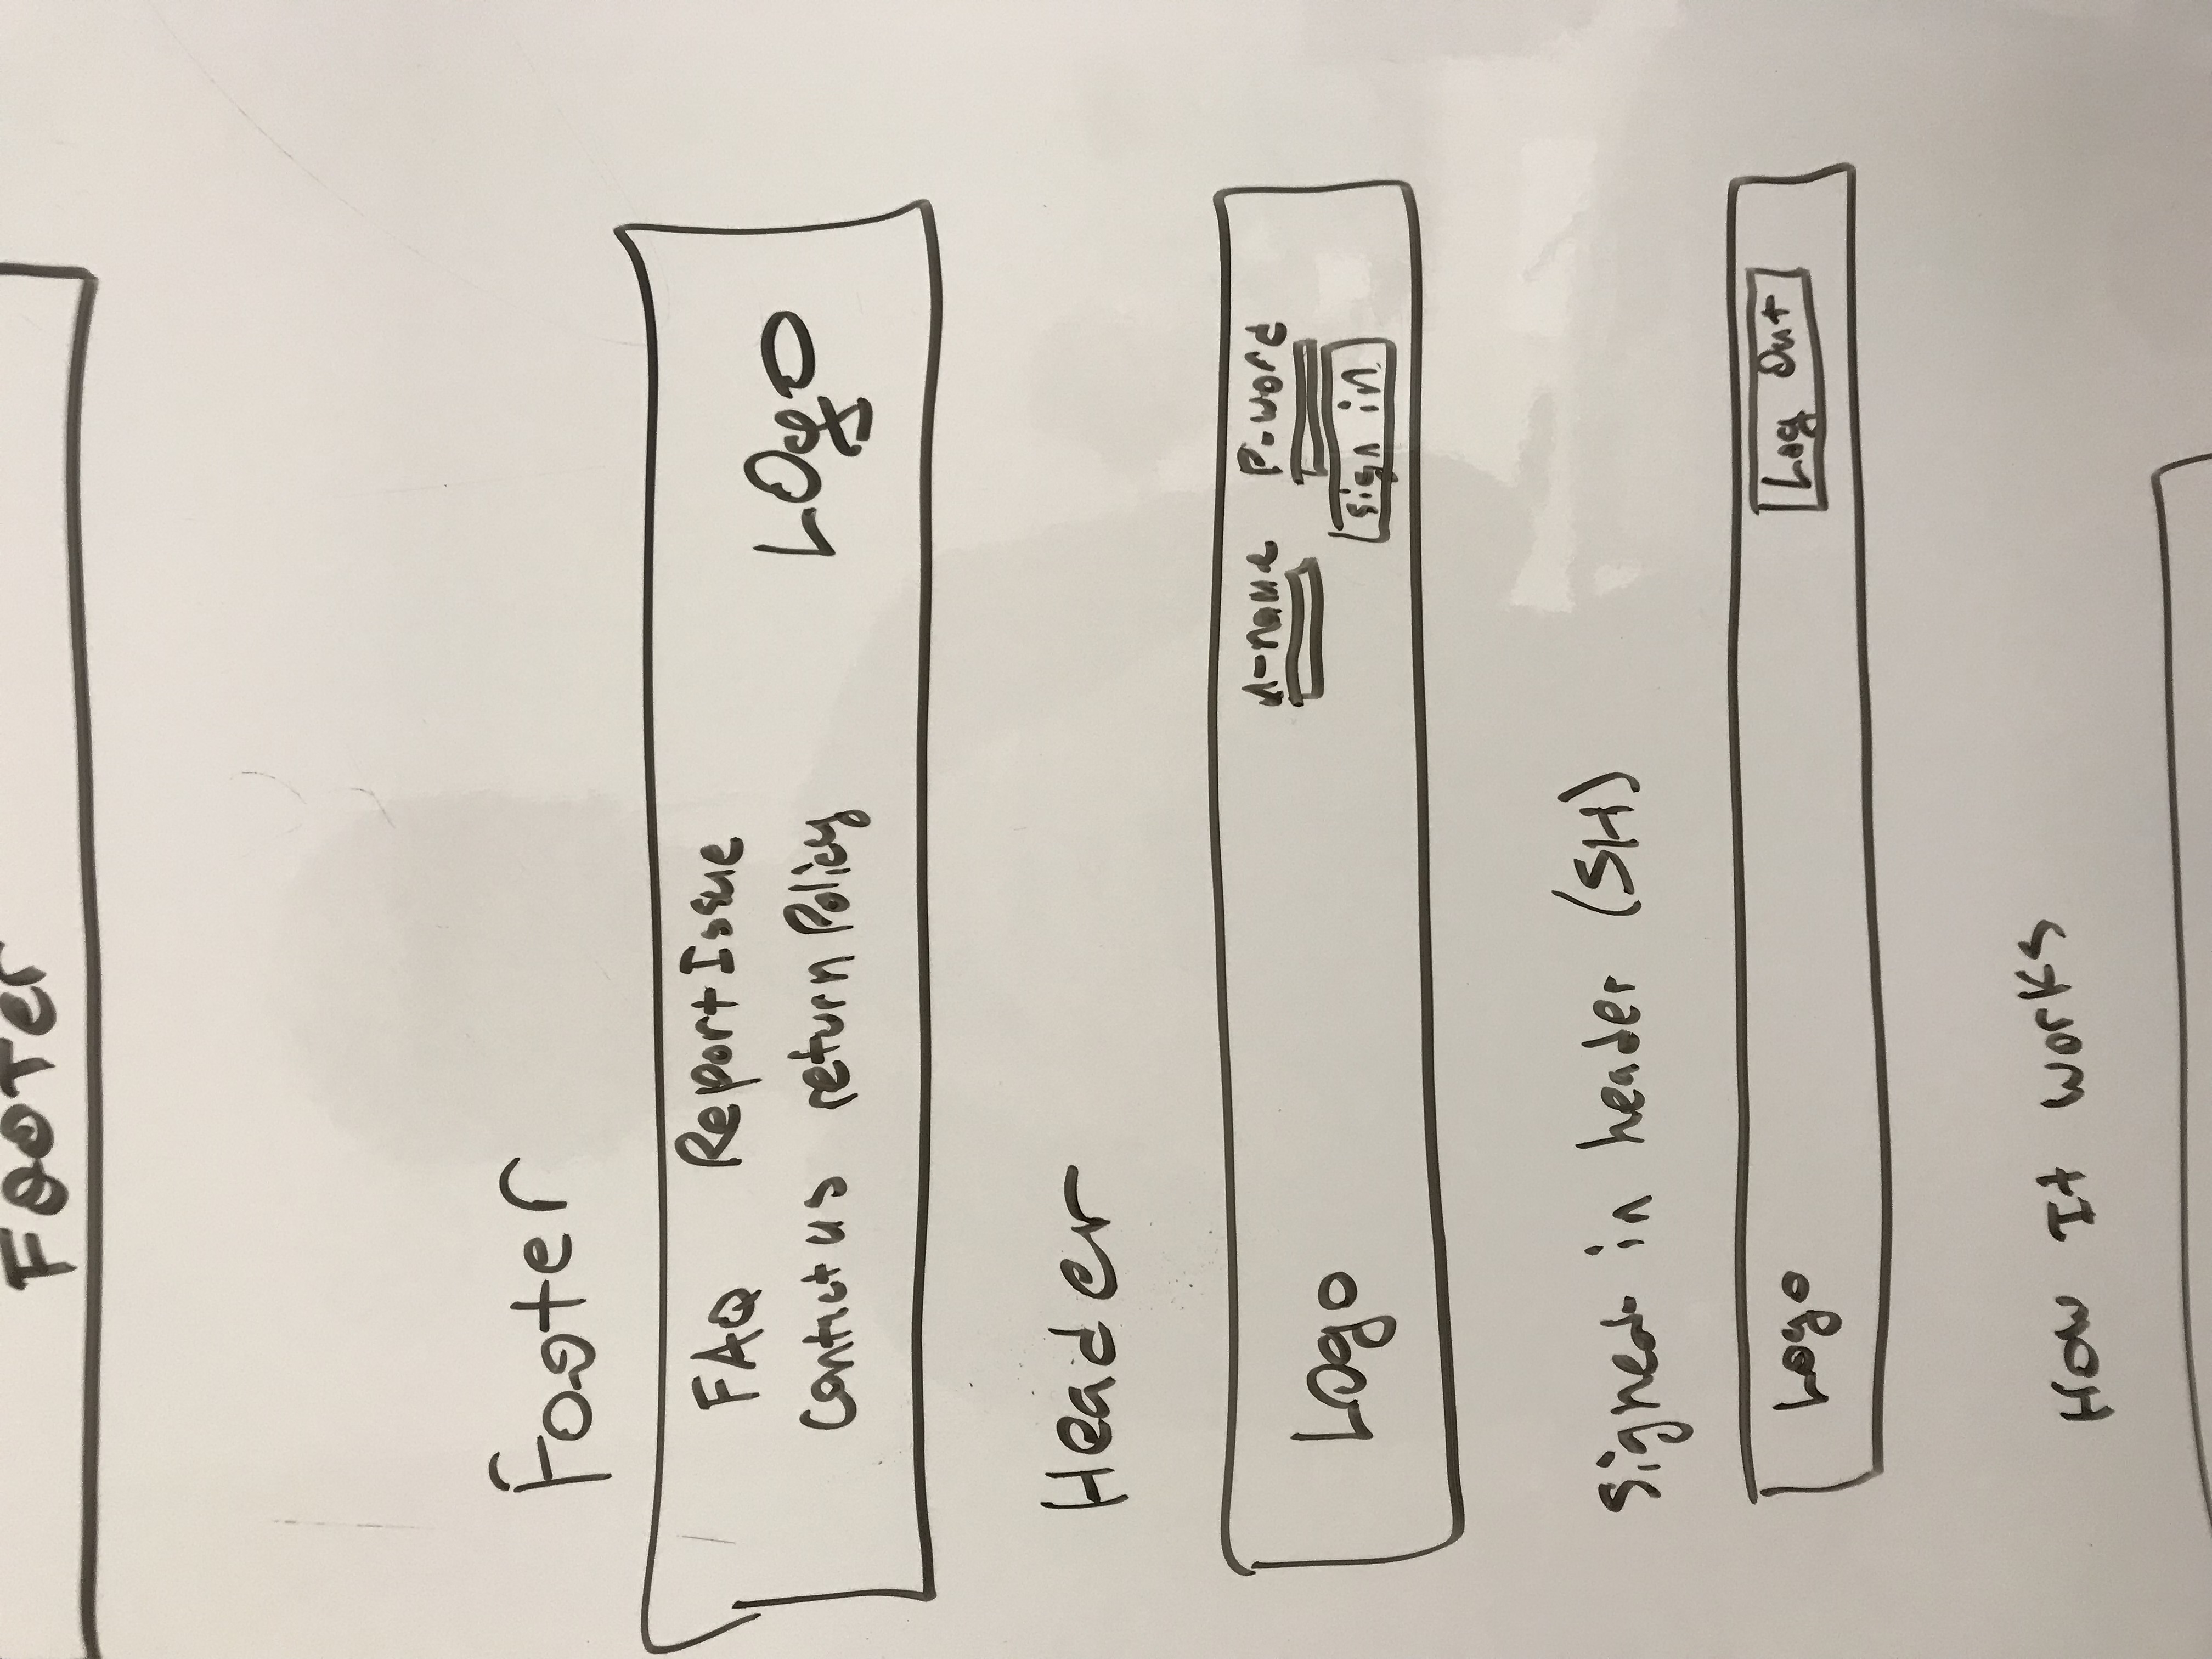 Footer
Footer
FAQ Report Issue
Contact us return Policy
LOgo
Header
u-name P-word
Logo
sign in
Signed in header (SH)
Logo
Log Out
How It works